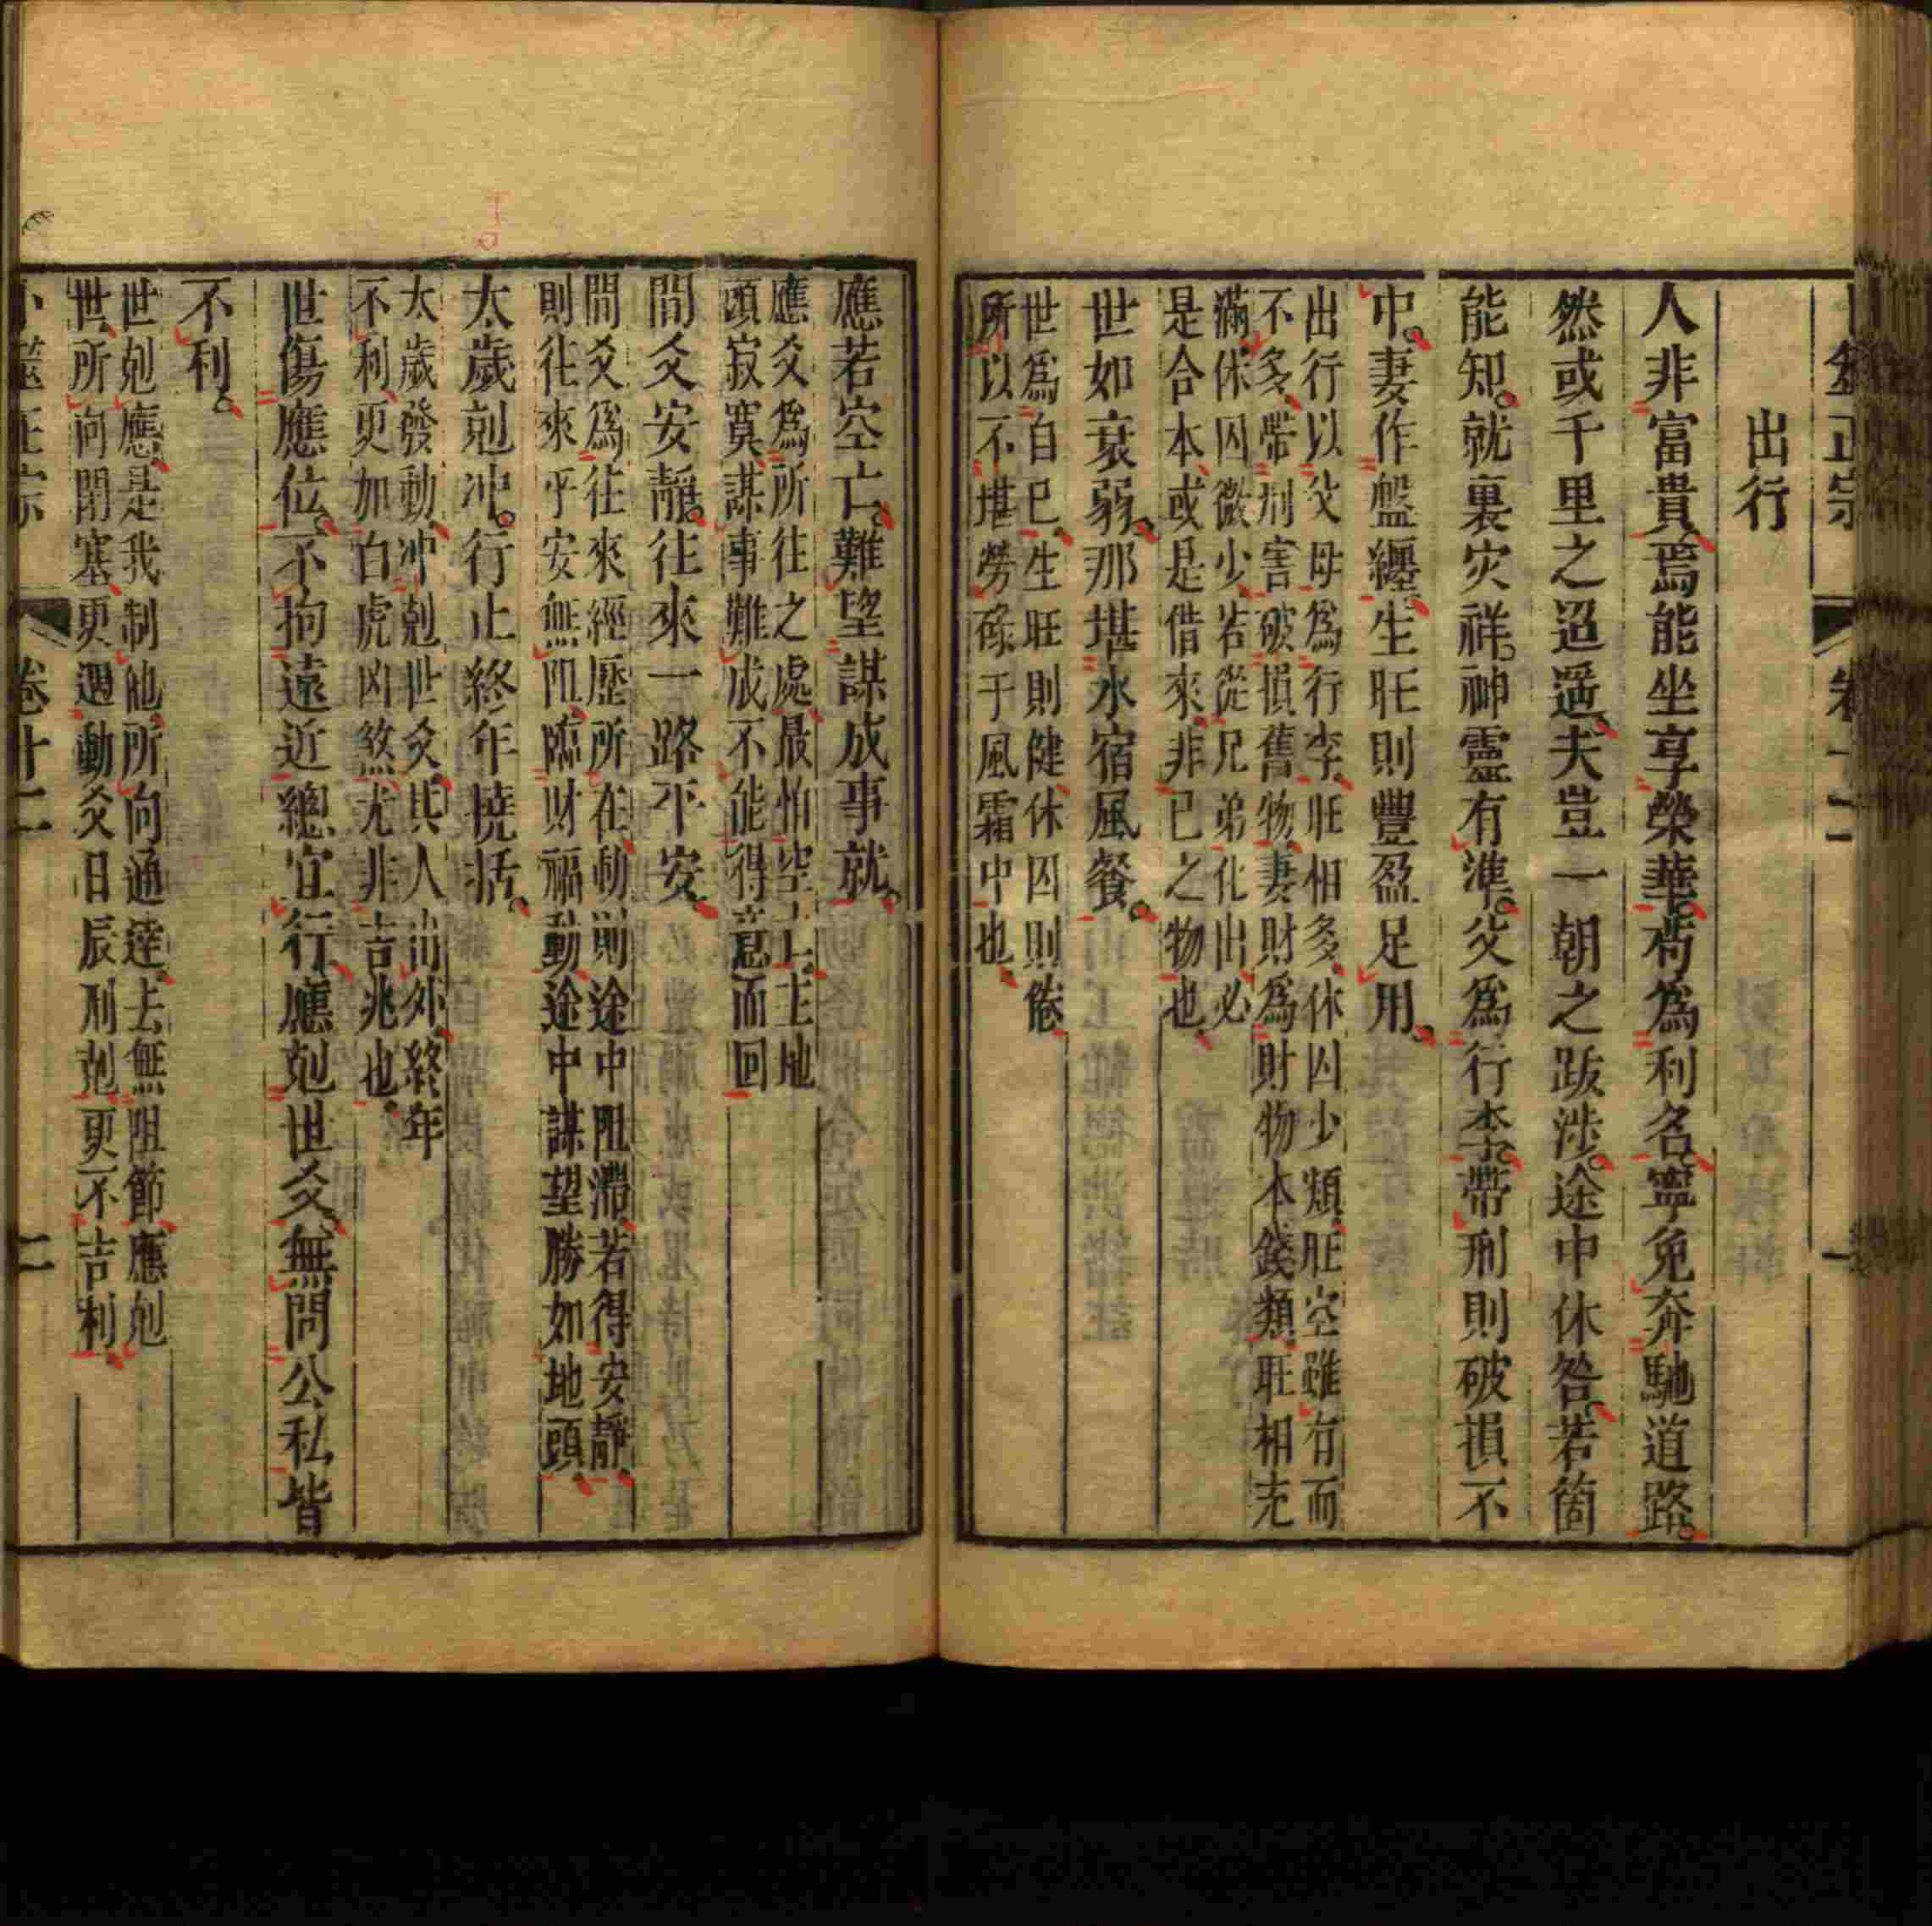 卜筮正宗 卷十二 一
出行
人非富貴焉能坐享榮華苟爲利名寧免奔馳道路
然或千里之迢遥夫豈一朝之跋涉途中休咎若箇
能知就裏灾祥神靈有準父爲行李帶刑則破損不
中妻作盤纏生旺則豐盈足用
出行以父母爲行李旺相多休囚少類旺空雖有而
不多帶刑害破損舊物妻財爲財物本錢類旺相充
滿休囚微少若從兄弟化出必
是合本或是借來非己之物也
世如衰弱那堪水宿風餐
世爲自己生旺則健休囚則倦
所以不堪勞碌于風霜中也
應若空亡難望謀成事就
應爻爲所往之處最怕空亡主地
頭寂寞謀事難成不能得意而回
間爻安靜往來一路平安
間爻爲往來經歷所在動則途中阻滯若得安靜
則往來平安無阻臨財福動途中謀望勝如地頭
太歲剋冲行止終年撓括
太歲發動冲剋世爻其人尚外終年
不利更加白虎凶煞尤非吉兆也
世傷應位不拘遠近總宜行應剋世爻無問公私皆
不利
世剋應是我制他所向通達去無阻節應剋
世所向閉塞更遇動爻日辰刑剋更不吉利
卜筮正宗 卷十二 二